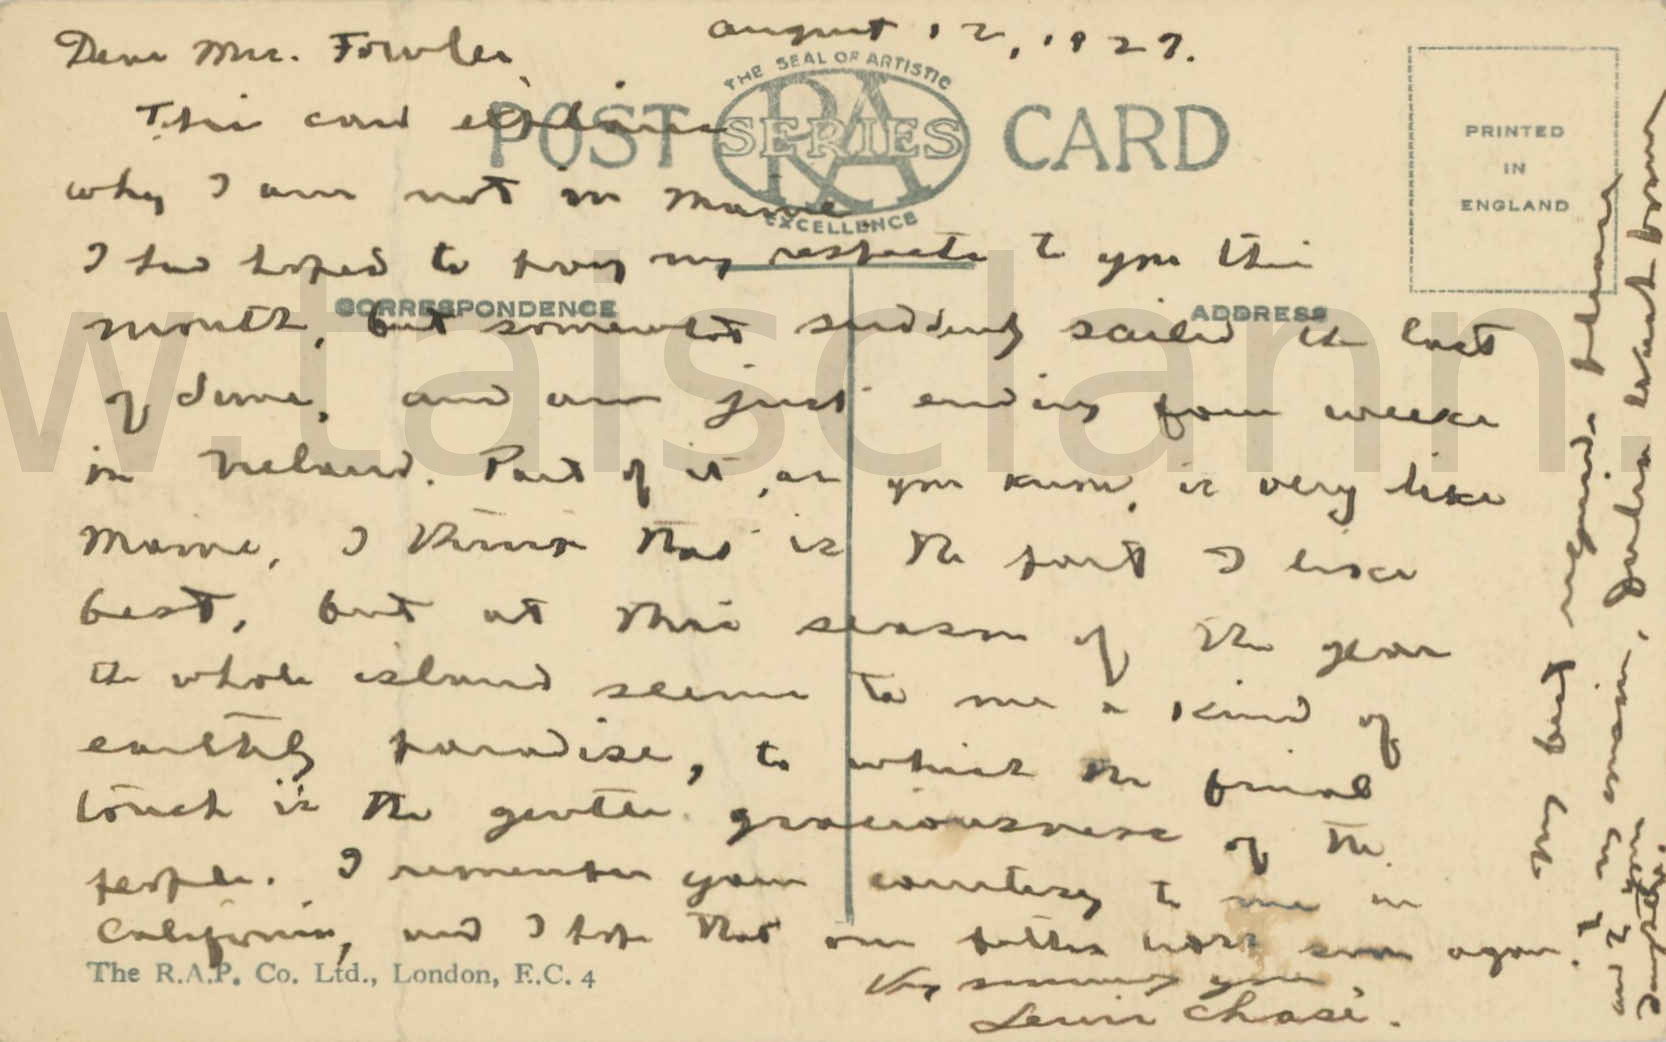 August 12, 1927.
Dear Mrs. Fowler,
THE SEAL OF ARTISTIC
RA
SERIES
EXCELLENCE
POST CARD
PRINTED
IN
ENGLAND
CORRESPONDENCE
ADDRESS
This card explains
why I am not in Maine
I had hoped to pay my respects to you this
month, but somewhat suddenly sailed the last
of June, and am just ending four weeks
in Ireland. Part of it, as you know, is very like
Maine, I think that is the part I like
best, but at this season of the year
the whole island seems to me a kind of
earthly paradise, to which the final
touch is the gentle graciousness of the
people. I remember your courtesy to me in
California, and I hope that our paths cross soon again.
Very sincerely yours
Lewis Chase.
My best regards please
to my cousin, Julia
and to your
daughter.
The R.A.P. Co. Ltd., London, E.C. 4
w.taisclann.